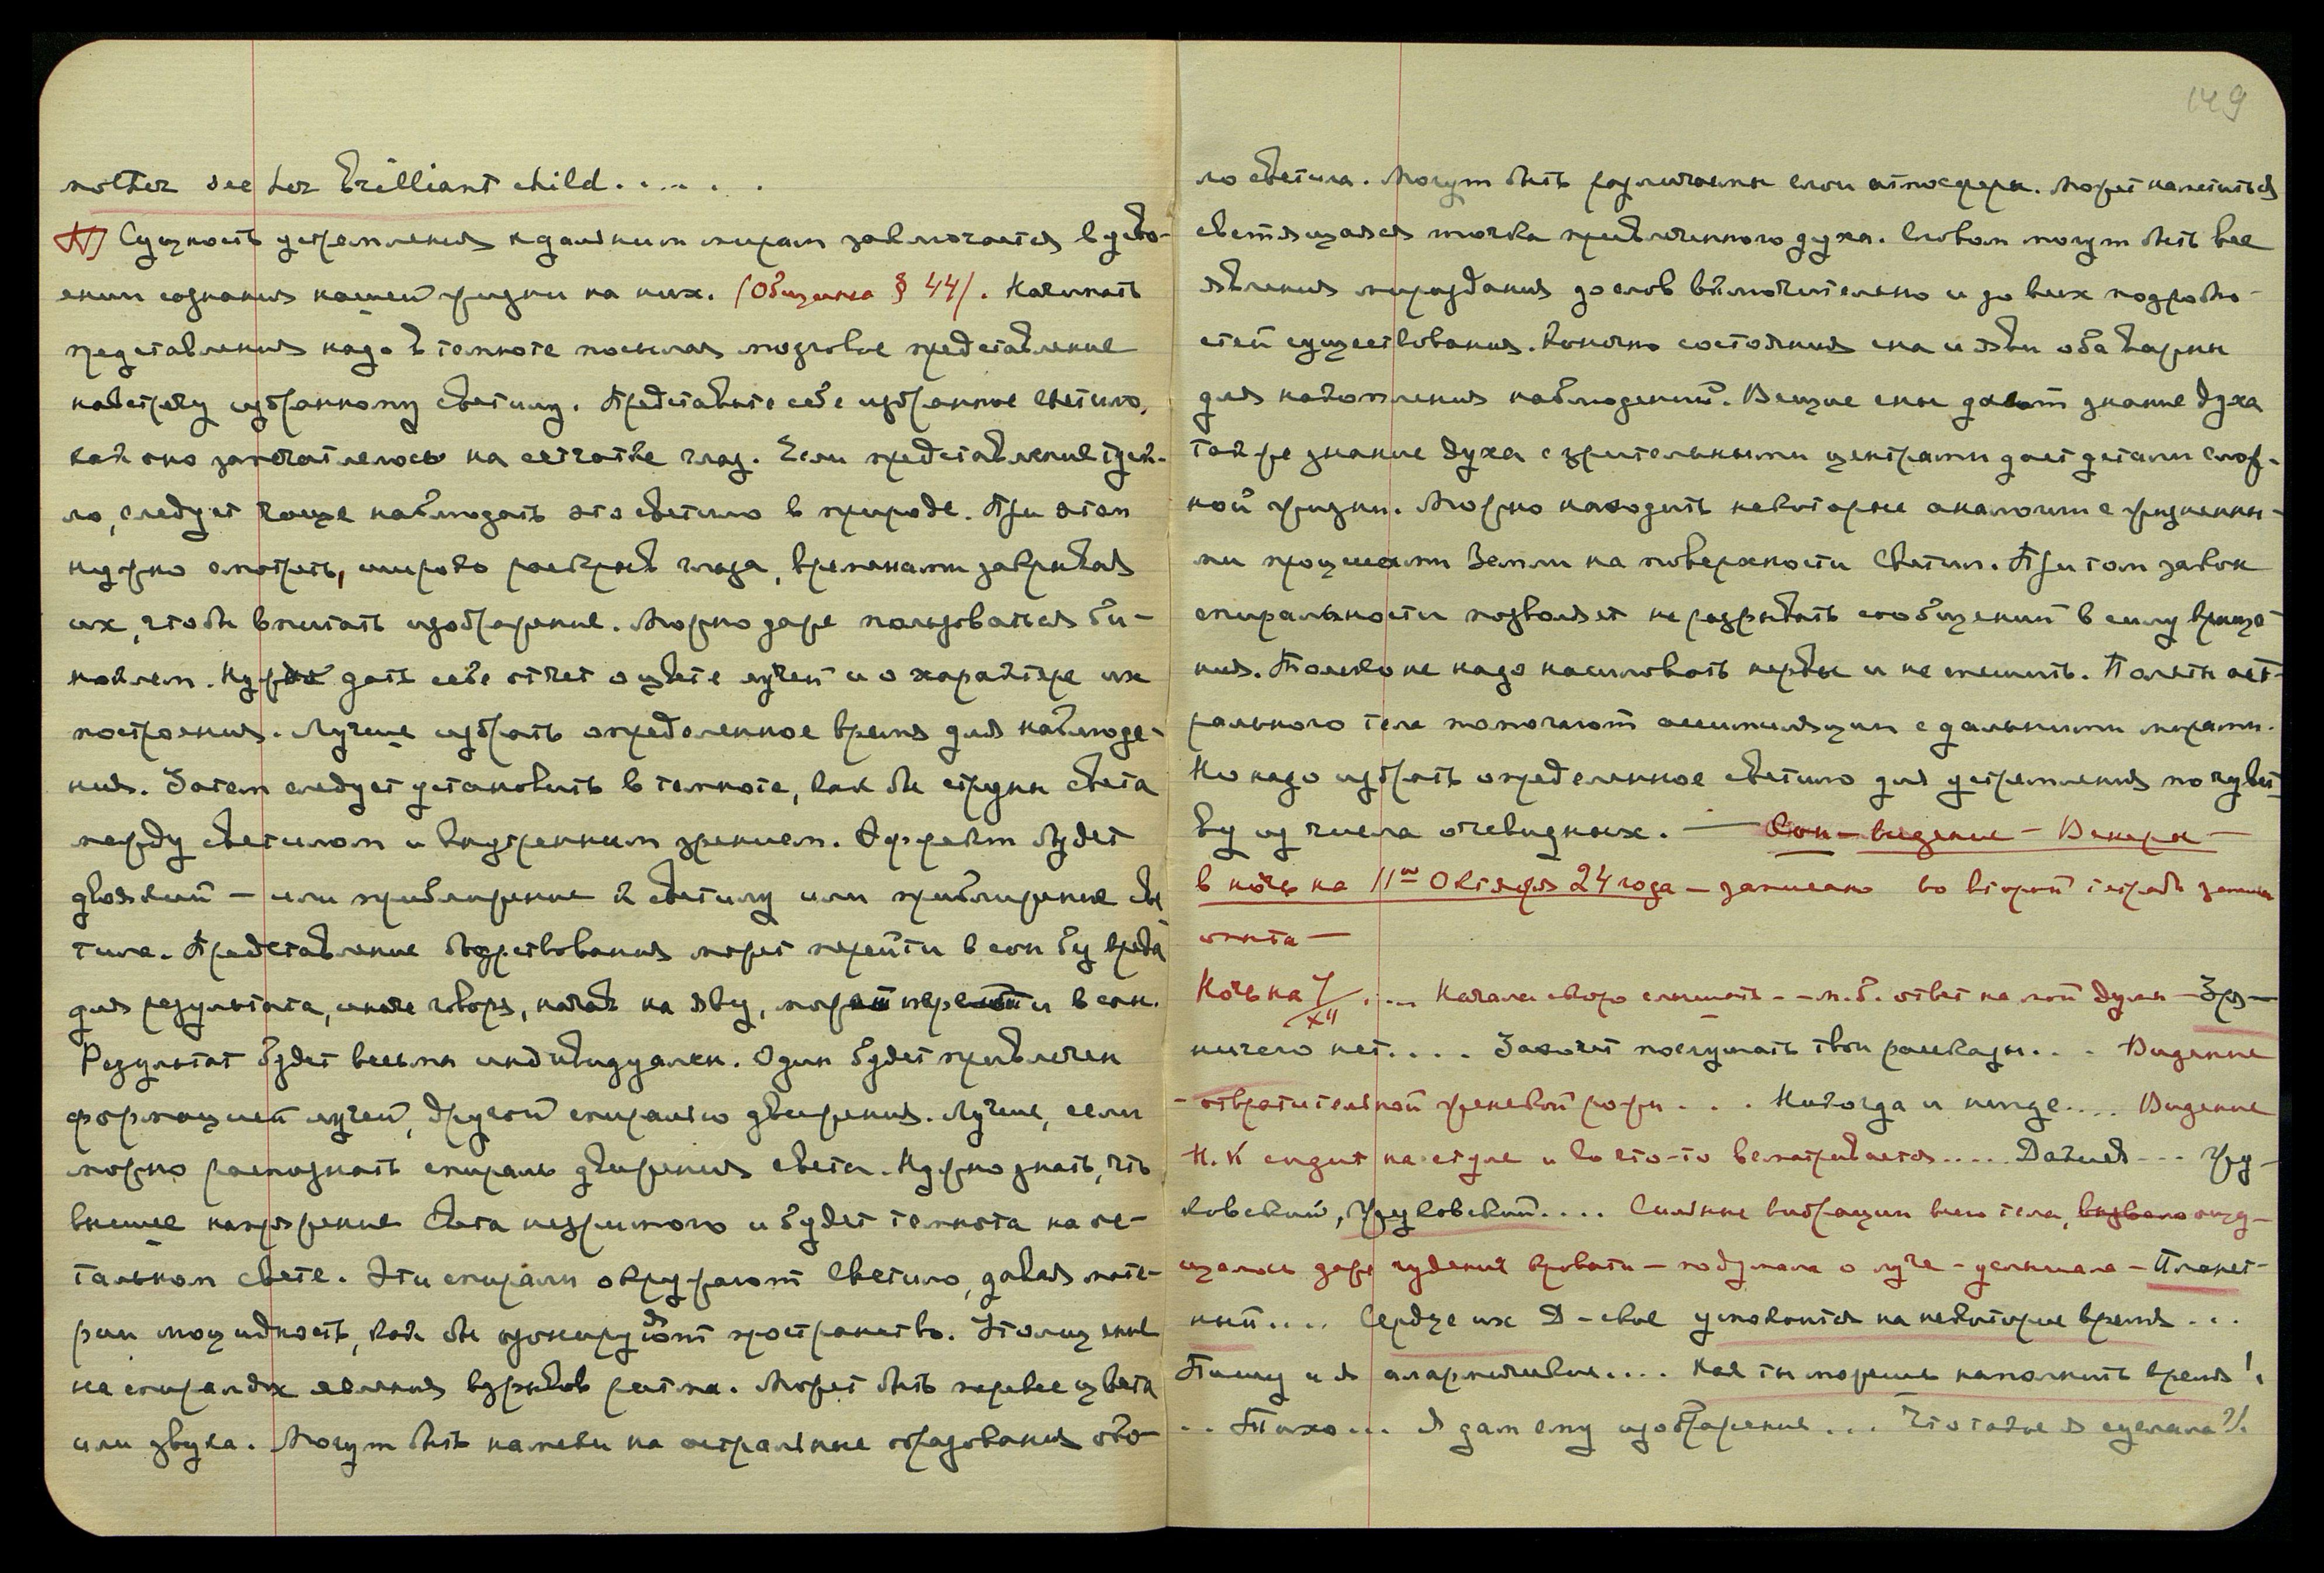 mother see her brilliant child......
Сущность устремления к дальним мирам заключается в усво-
ении сознания нашей жизни на них. (Община § 44). Начинать
представления надо в темноте посылая мозговое представление
навстречу избранному светилу. Представьте себе избранное светило,
как оно запечатлелось на сетчатке глаз. Если представление туск-
ло, следует чаще наблюдать это светило в природе. При этом
нужно смотреть, широко раскрыв глаза, временами закрывая
их, чтобы впитать изображение. Можно даже пользоваться би-
ноклем. Нужно дать себе отчет о цвете лучей и о характере их
построения. Лучше избрать определенное время для наблюде-
ния. Затем следует установить в темноте, как бы струны света
между светилом и внутренним зрением. Эффект будет
двоякий – или приближение к светилу или приближение све
тила. Представление бодрствования может перейти в сон без вреда
для результата, иначе говоря, начав на яву, может перейти в сон.
Результат будет весьма индивидуален. Один будет привлечен
формацией лучей, другой спиралью движения. Лучше, если
можно распознать спираль движения света. Нужно знать, что
высшее напряжение света незримого и будет темнота на ос-
тальном свете. Эти спирали окружают светило, давая мате-
рии мощидность, как бы озонируют пространство. Утолщение
на спиралях явления взрывов ритма. Может быть перевес цвета
или звука. Могут быть намеки на астральные образования око-
149
ло светила. Могут быть различаемы слои атмосферы. Может наметиться
светящаяся точка привлеченного духа. Словом могут быть все
явления мироздания до слов включительно и до всех подробно-
стей существования. Конечно состояния сна и яви оба важны
для накопления наблюдений. Вещие сны дают знание духа
также знание духа с зрительными центрами дает детали слож-
ной жизни. Можно находить некоторые аналогии с жизненны-
ми процессами Земли на поверхности Светил. При том закон
спиральности позволяет не разрывать сообщений в силу враще-
ния. Только не надо насиловать нервы и не спешить. Полеты аст-
рального тела помогают ассимиляции с дальними мирами.
Но надо избрать определенное светило для устремления по чувст-
ву из числа очевидных. — Сон – видение – Венеры –
в ночь на 11ое Октября 24 года – записано во второй тетради записи
опыта –
Ночь на 7/XII .... Начала скоро слышать – м.б. ответ на мой думы – Зря –
ничего нет.... Захочет послушать твои рассказы... Видение
– отвратительной женской рожи.... Никогда и нигде.... Видение
Н.К сидит на стуле и во что-то всматривается..... Даниял ... Жу-
ковский, Жуковский.... Сильные вибрации всего тела, вызвало ощу-
щалось даже гудение кровати – подумала о луче – услышала – Планет-
ный.... Сердце их Я – свое успокоится на некоторое время...
Пишу и я алармически.... Как ты можешь наполнить время!,
.. Тихо... Я дам ему изображение... Что такое я сделала?!.